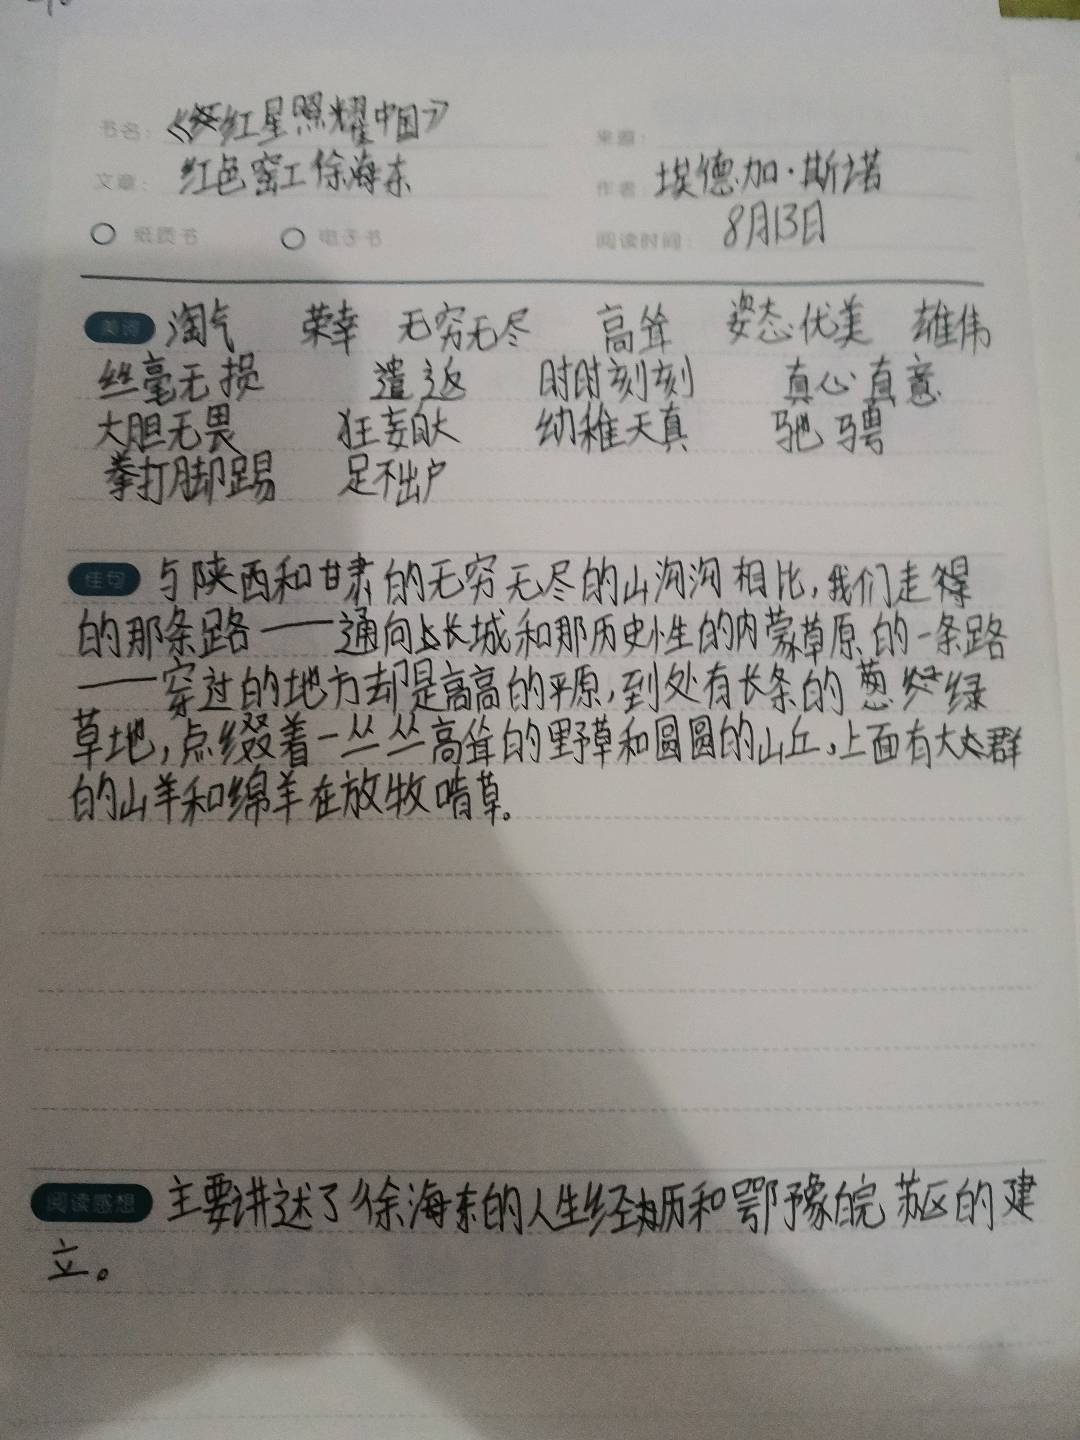 书名: 《红星照耀中国》
来源:
文章: 红色窑工徐海东
作者: 埃德加·斯诺
纸质书 电子书 阅读时间: 8月13日
美词 淘气 荣幸 无穷无尽 高耸 姿态优美 雄伟
丝毫无损 遣返 时时刻刻 真心真意
大胆无畏 狂妄自大 幼稚天真 驰骋
拳打脚踢 足不出户
佳句 与陕西和甘肃的无穷无尽的山沟沟相比,我们走得
的那条路——通向长城和那历史性的内蒙草原的一条路
——穿过的地方却是高高的平原,到处有长条的葱绿
草地,点缀着一丛丛高耸的野草和圆圆的山丘,上面有大群
的山羊和绵羊在放牧啃草。
阅读感想 主要讲述了徐海东的人生经历和鄂豫皖苏区的建
立。